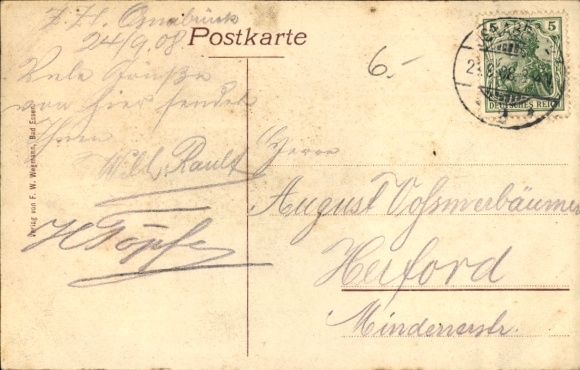 Z. Zt. Osnabrück
24/9.08
Postkarte
6.-
5
DEUTSCHES REICH
Viele Grüße
von hier sendet
Ihnen
Wilh.
H Töpfer
Herrn
August Vossmerbäumer
Herford
Mindenerstr.
Verlag von F. W. Wegmann, Bad Essen.